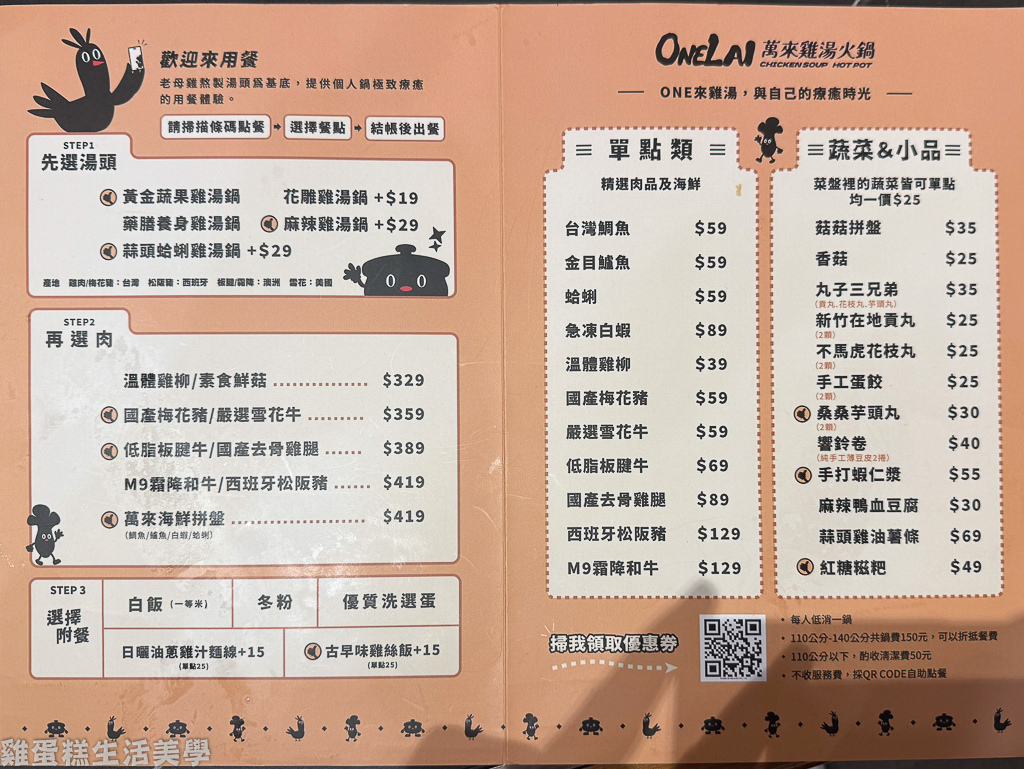 歡迎來用餐
老母雞熬製湯頭為基底，提供個人鍋極致療癒
的用餐體驗。
請掃描條碼點餐 選擇餐點 結帳後出餐
STEP1
先選湯頭
黃金蔬果雞湯鍋 花雕雞湯鍋 +$19
藥膳養身雞湯鍋 麻辣雞湯鍋 +$29
蒜頭蛤蜊雞湯鍋 +$29
產地 雞肉/梅花豬：台灣 松阪豬：西班牙 板腱/霜降：澳洲 雪花：美國
STEP2
再選肉
溫體雞柳/素食鮮菇 $329
國產梅花豬/嚴選雪花牛 $359
低脂板腱牛/國產去骨雞腿 $389
M9霜降和牛/西班牙松阪豬 $419
萬來海鮮拼盤 $419
(鯛魚/鱸魚/白蝦/蛤蜊)
STEP 3
選擇
附餐
白飯 (一等米) 冬粉 優質洗選蛋
日曬油蔥雞汁麵線+15
(單點25)
古早味雞絲飯+15
(單點25)
ONELAI 萬來雞湯火鍋
CHICKEN SOUP HOT POT
ONE來雞湯，與自己的療癒時光
單點類
精選肉品及海鮮
台灣鯛魚 $59
金目鱸魚 $59
蛤蜊 $59
急凍白蝦 $89
溫體雞柳 $39
國產梅花豬 $59
嚴選雪花牛 $59
低脂板腱牛 $69
國產去骨雞腿 $89
西班牙松阪豬 $129
M9霜降和牛 $129
蔬菜&小品
菜盤裡的蔬菜皆可單點
均一價$25
菇菇拼盤 $35
香菇 $25
丸子三兄弟 $35
(貢丸.花枝丸.芋頭丸)
新竹在地貢丸 $25
(2顆)
不馬虎花枝丸 $25
(2顆)
手工蛋餃 $25
(2顆)
桑桑芋頭丸 $30
(2顆)
響鈴卷 $40
(純手工薄豆皮2捲)
手打蝦仁漿 $55
麻辣鴨血豆腐 $30
蒜頭雞油薯條 $69
紅糖糍粑 $49
掃我領取優惠券
• 每人低消一鍋
• 110公分-140公分共鍋費150元，可以折抵餐費
• 110公分以下，酌收清潔費50元
• 不收服務費，採QR CODE自助點餐
雞蛋糕生活美學